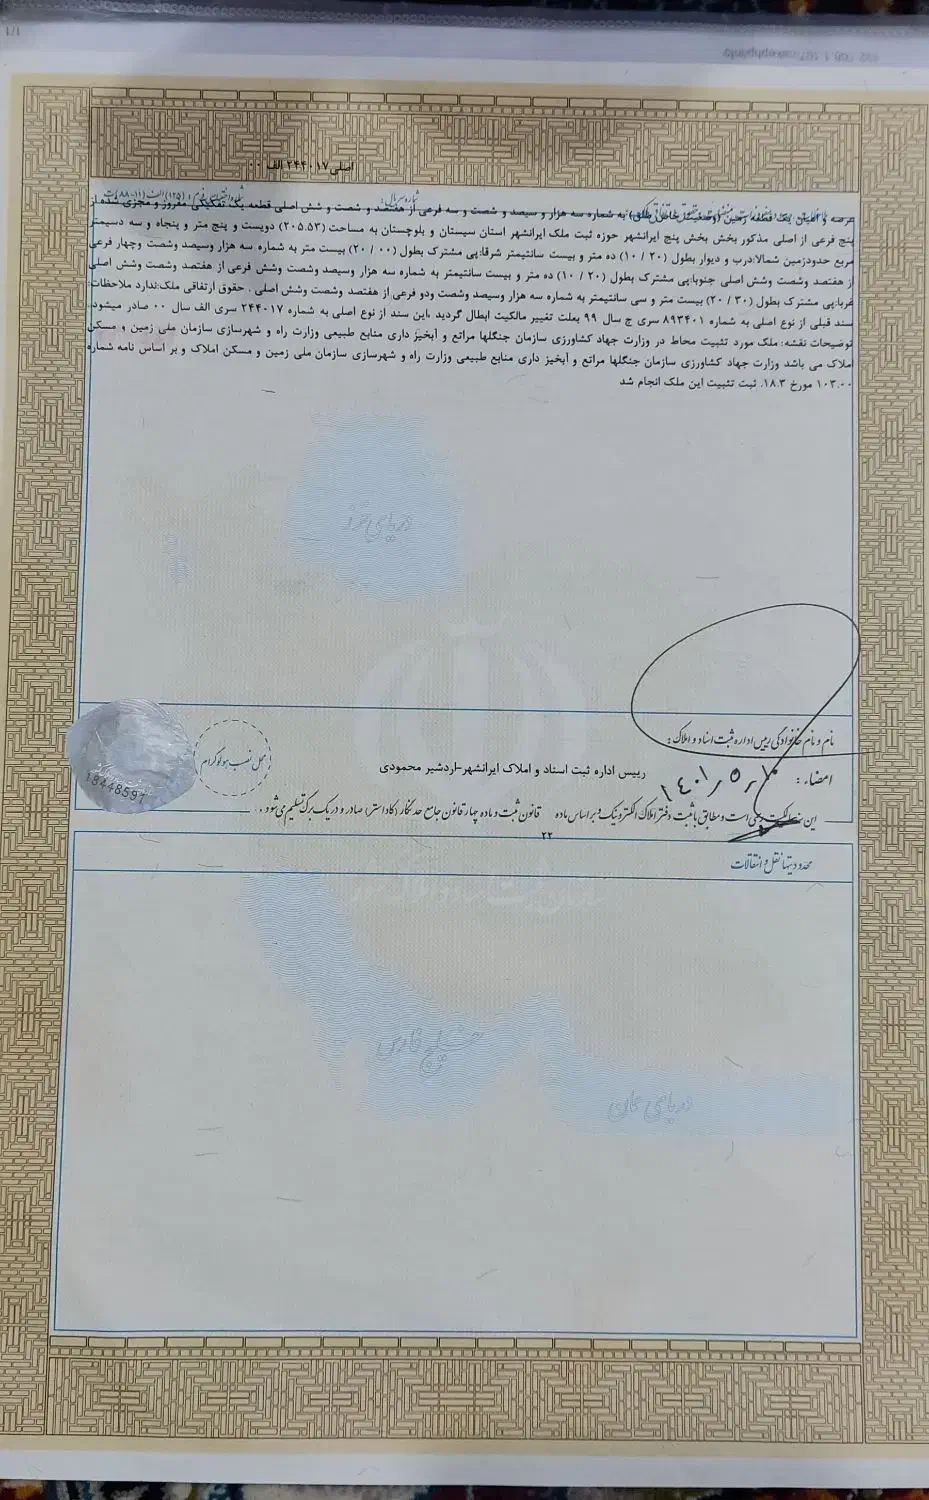 اصلی ۲۴۴۰۱۷ الف ۰۰
عرصه و اعیان یک قطعه زمین به شماره سه هزار و سیصد و شصت و سه فرعی از هفتصد و شصت و شش اصلی قطعه یک تفکیکی مفروز و مجزی شده از
پنج فرعی از اصلی مذکور بخش بخش پنج ایرانشهر حوزه ثبت ملک ایرانشهر استان سیستان و بلوچستان به مساحت (۲۰۵.۵۳) دویست و پنج متر و پنجاه و سه دسیمتر
مربع حدودزمین شمالا:درب و دیوار بطول (۲۰ / ۱۰) ده متر و بیست سانتیمتر شرقا:پی مشترک بطول (۰۰ / ۲۰) بیست متر به شماره سه هزار وسیصد وشصت وچهار فرعی
از هفتصد وشصت وشش اصلی جنوبا:پی مشترک بطول (۲۰ / ۱۰) ده متر و بیست سانتیمتر به شماره سه هزار وسیصد وشصت وشش فرعی از هفتصد وشصت وشش اصلی
غربا:پی مشترک بطول (۳۰ / ۲۰) بیست متر و سی سانتیمتر به شماره سه هزار وسیصد وشصت ودو فرعی از هفتصد وشصت وشش اصلی . حقوق ارتفاقی ملک:ندارد ملاحظات:
سند قبلی از نوع اصلی به شماره ۸۹۳۴۰۱ سری ج سال ۹۹ بعلت تغییر مالکیت ابطال گردید ،این سند از نوع اصلی به شماره ۲۴۴۰۱۷ سری الف سال ۰۰ صادر میشود.
توضیحات نقشه: ملک مورد تثبیت محاط در وزارت جهاد کشاورزی سازمان جنگلها مراتع و آبخیز داری منابع طبیعی وزارت راه و شهرسازی سازمان ملی زمین و مسکن
املاک می باشد وزارت جهاد کشاورزی سازمان جنگلها مراتع و آبخیز داری منابع طبیعی وزارت راه و شهرسازی سازمان ملی زمین و مسکن املاک و بر اساس نامه شماره
۱۰۳.۰۰ مورخ ۱۸.۳. ثبت تثبیت این ملک انجام شد
دریای خزر
نام و نام خانوادگی رییس اداره ثبت اسناد و املاک :
رییس اداره ثبت اسناد و املاک ایرانشهر-اردشیر محمودی
محل نصب هولوگرام
18448591
امضاء :
۱۴۰۱٫۵٫۱۰
این سند مالکیت است و مطابق با ثبت دفتر املاک الکترونیک و بر اساس ماده ۲۲ قانون ثبت و ماده چهار قانون جامع حدنگار (کاداستر) صادر و در یک برگ تسلیم می شود .
محدودیتها نقل و انتقالات
خلیج فارس
دریای عمان